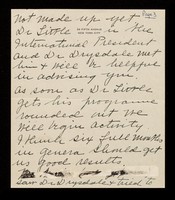 not made up yet
Dr Little is the
International President
and Dr Drysdale met
him & will be helpful
in advising you.
as soon as Dr Little
gets his programme
rounded out we
will begin activity
I think six full months
in general should get
us good results.
saw Dr Drysdale & tried to